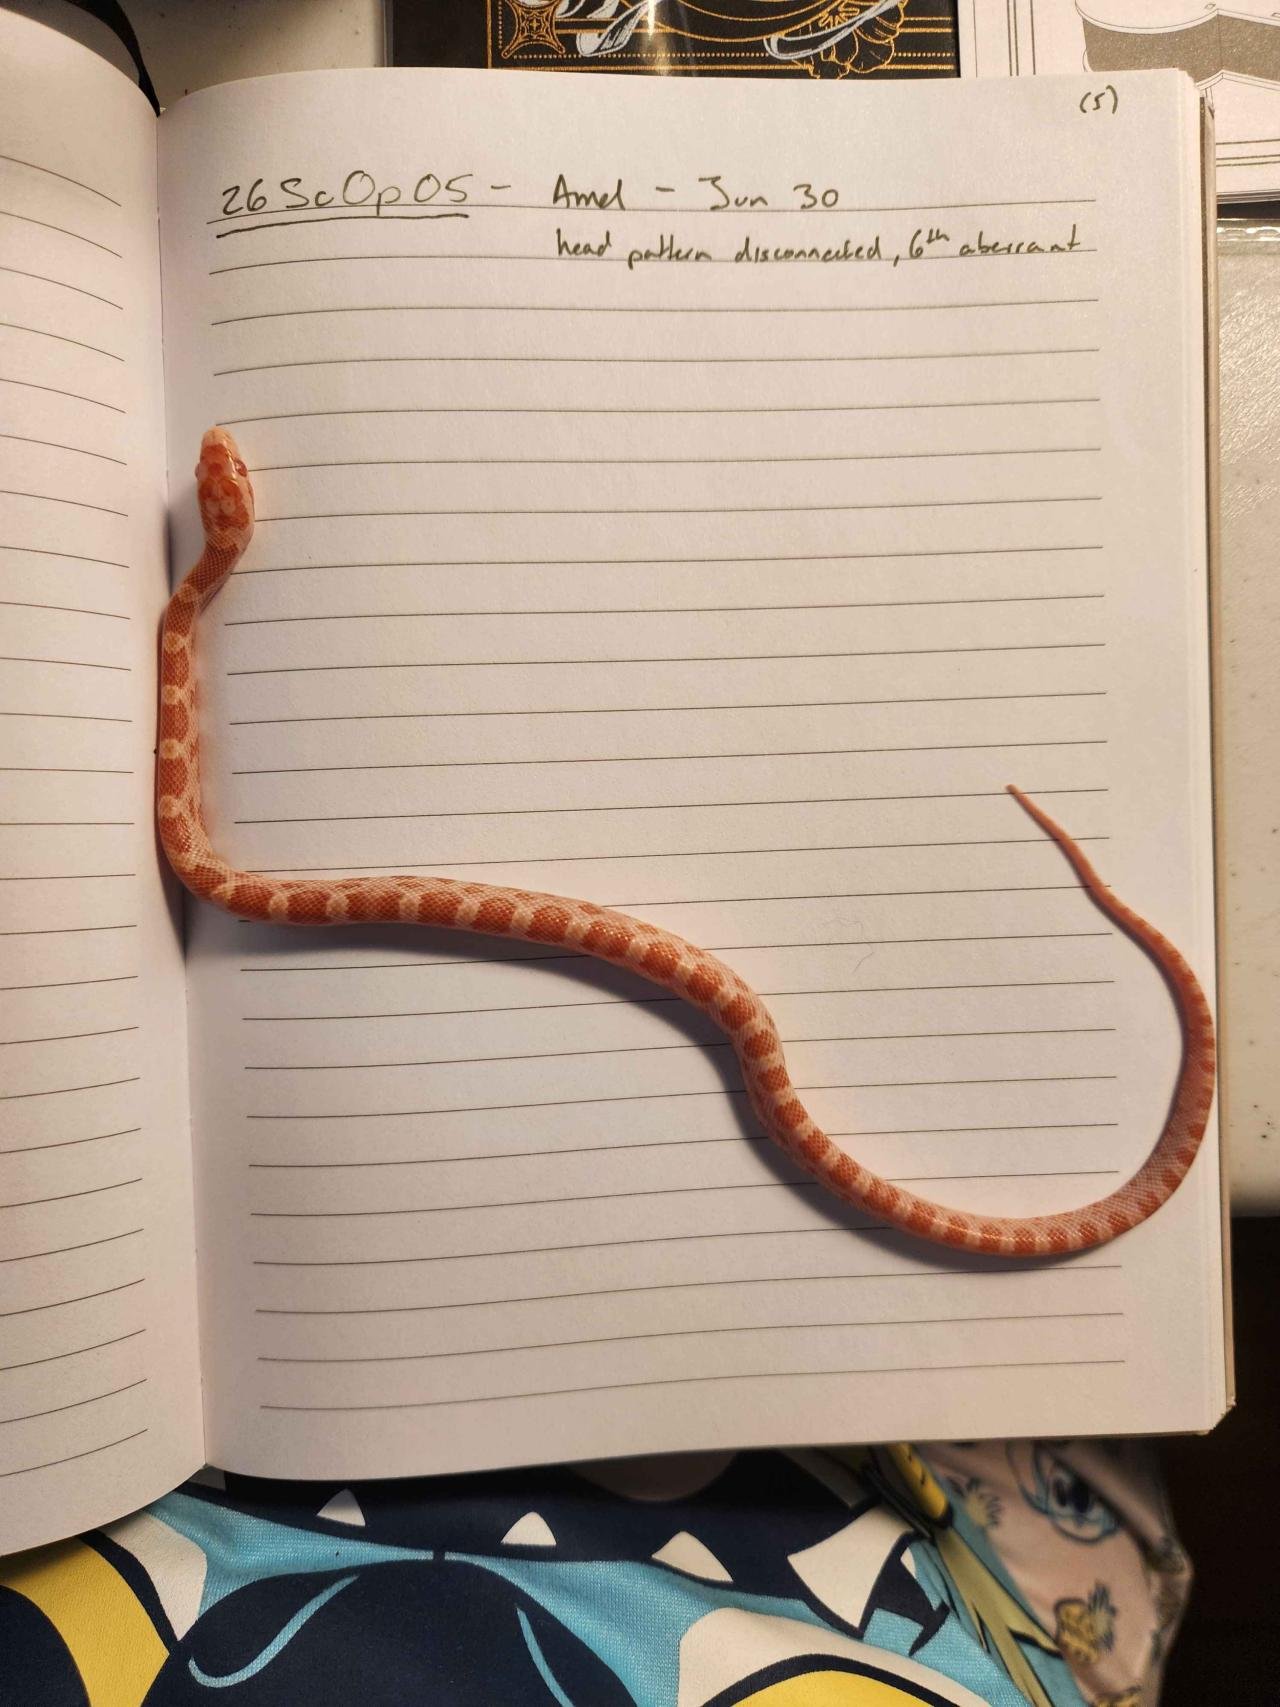 (5)
26ScOpO5 - Amel - Jun 30
head pattern disconnected, 6th aberrant